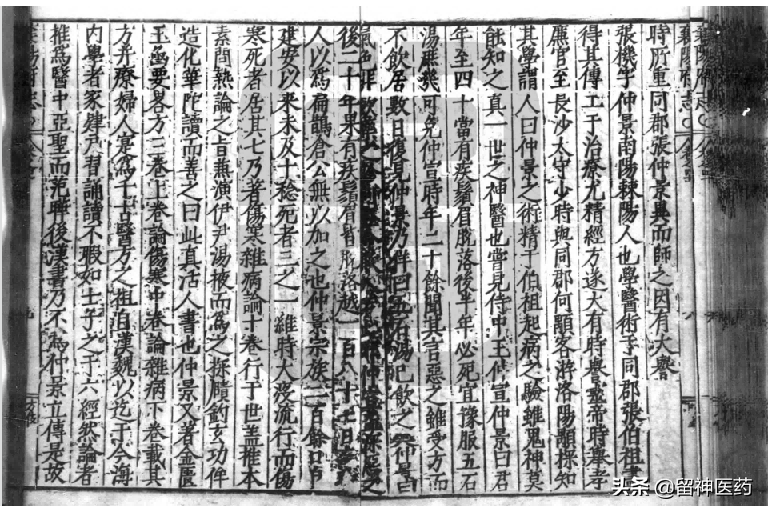 襄陽府志
時所重同郡張仲景異而師之因有大譽
張機字仲景南陽棘陽人也學醫術于同郡張伯祖盡
得其傳工于治療尤精經方遂大有時譽靈帝時舉孝
廉官至長沙太守少時與同郡何顒客游洛陽顒探知
其學謂人曰仲景之術精于伯祖起病之驗雖鬼神莫
能知之真一世之神醫也嘗見侍中王仲宣仲景曰君
年至四十當有疾鬚眉脫落後半年必死宜豫服五石
湯庶幾可免仲宣時年二十餘聞其言惡之雖受方而
不飲居數日復見仲景乃佯曰五石湯已飲之
後二十年果有疾鬚眉脫落越一百八十七日
人以為扁鵲倉公無以加之也仲景宗族二百餘口自
建安以來未及十稔死者三之二維時大疫流行而傷
寒死者居其七乃著傷寒雜病論十卷行于世蓋推本
素問熱論之旨兼演伊尹湯液而為之探賾鈎玄功侔
造化華陀讀而善之曰此真活人書也仲景又著金匱
玉函要畧方三卷上卷論傷寒中卷論雜病下卷載其
方并療婦人寔為千古醫方之祖自漢魏以迄于今海
內學者家肄戶習誦讀不暇如士子之于六經然論者
推為醫中亞聖而范曄後漢書乃不為仲景立傳是故
头条 @留神医药